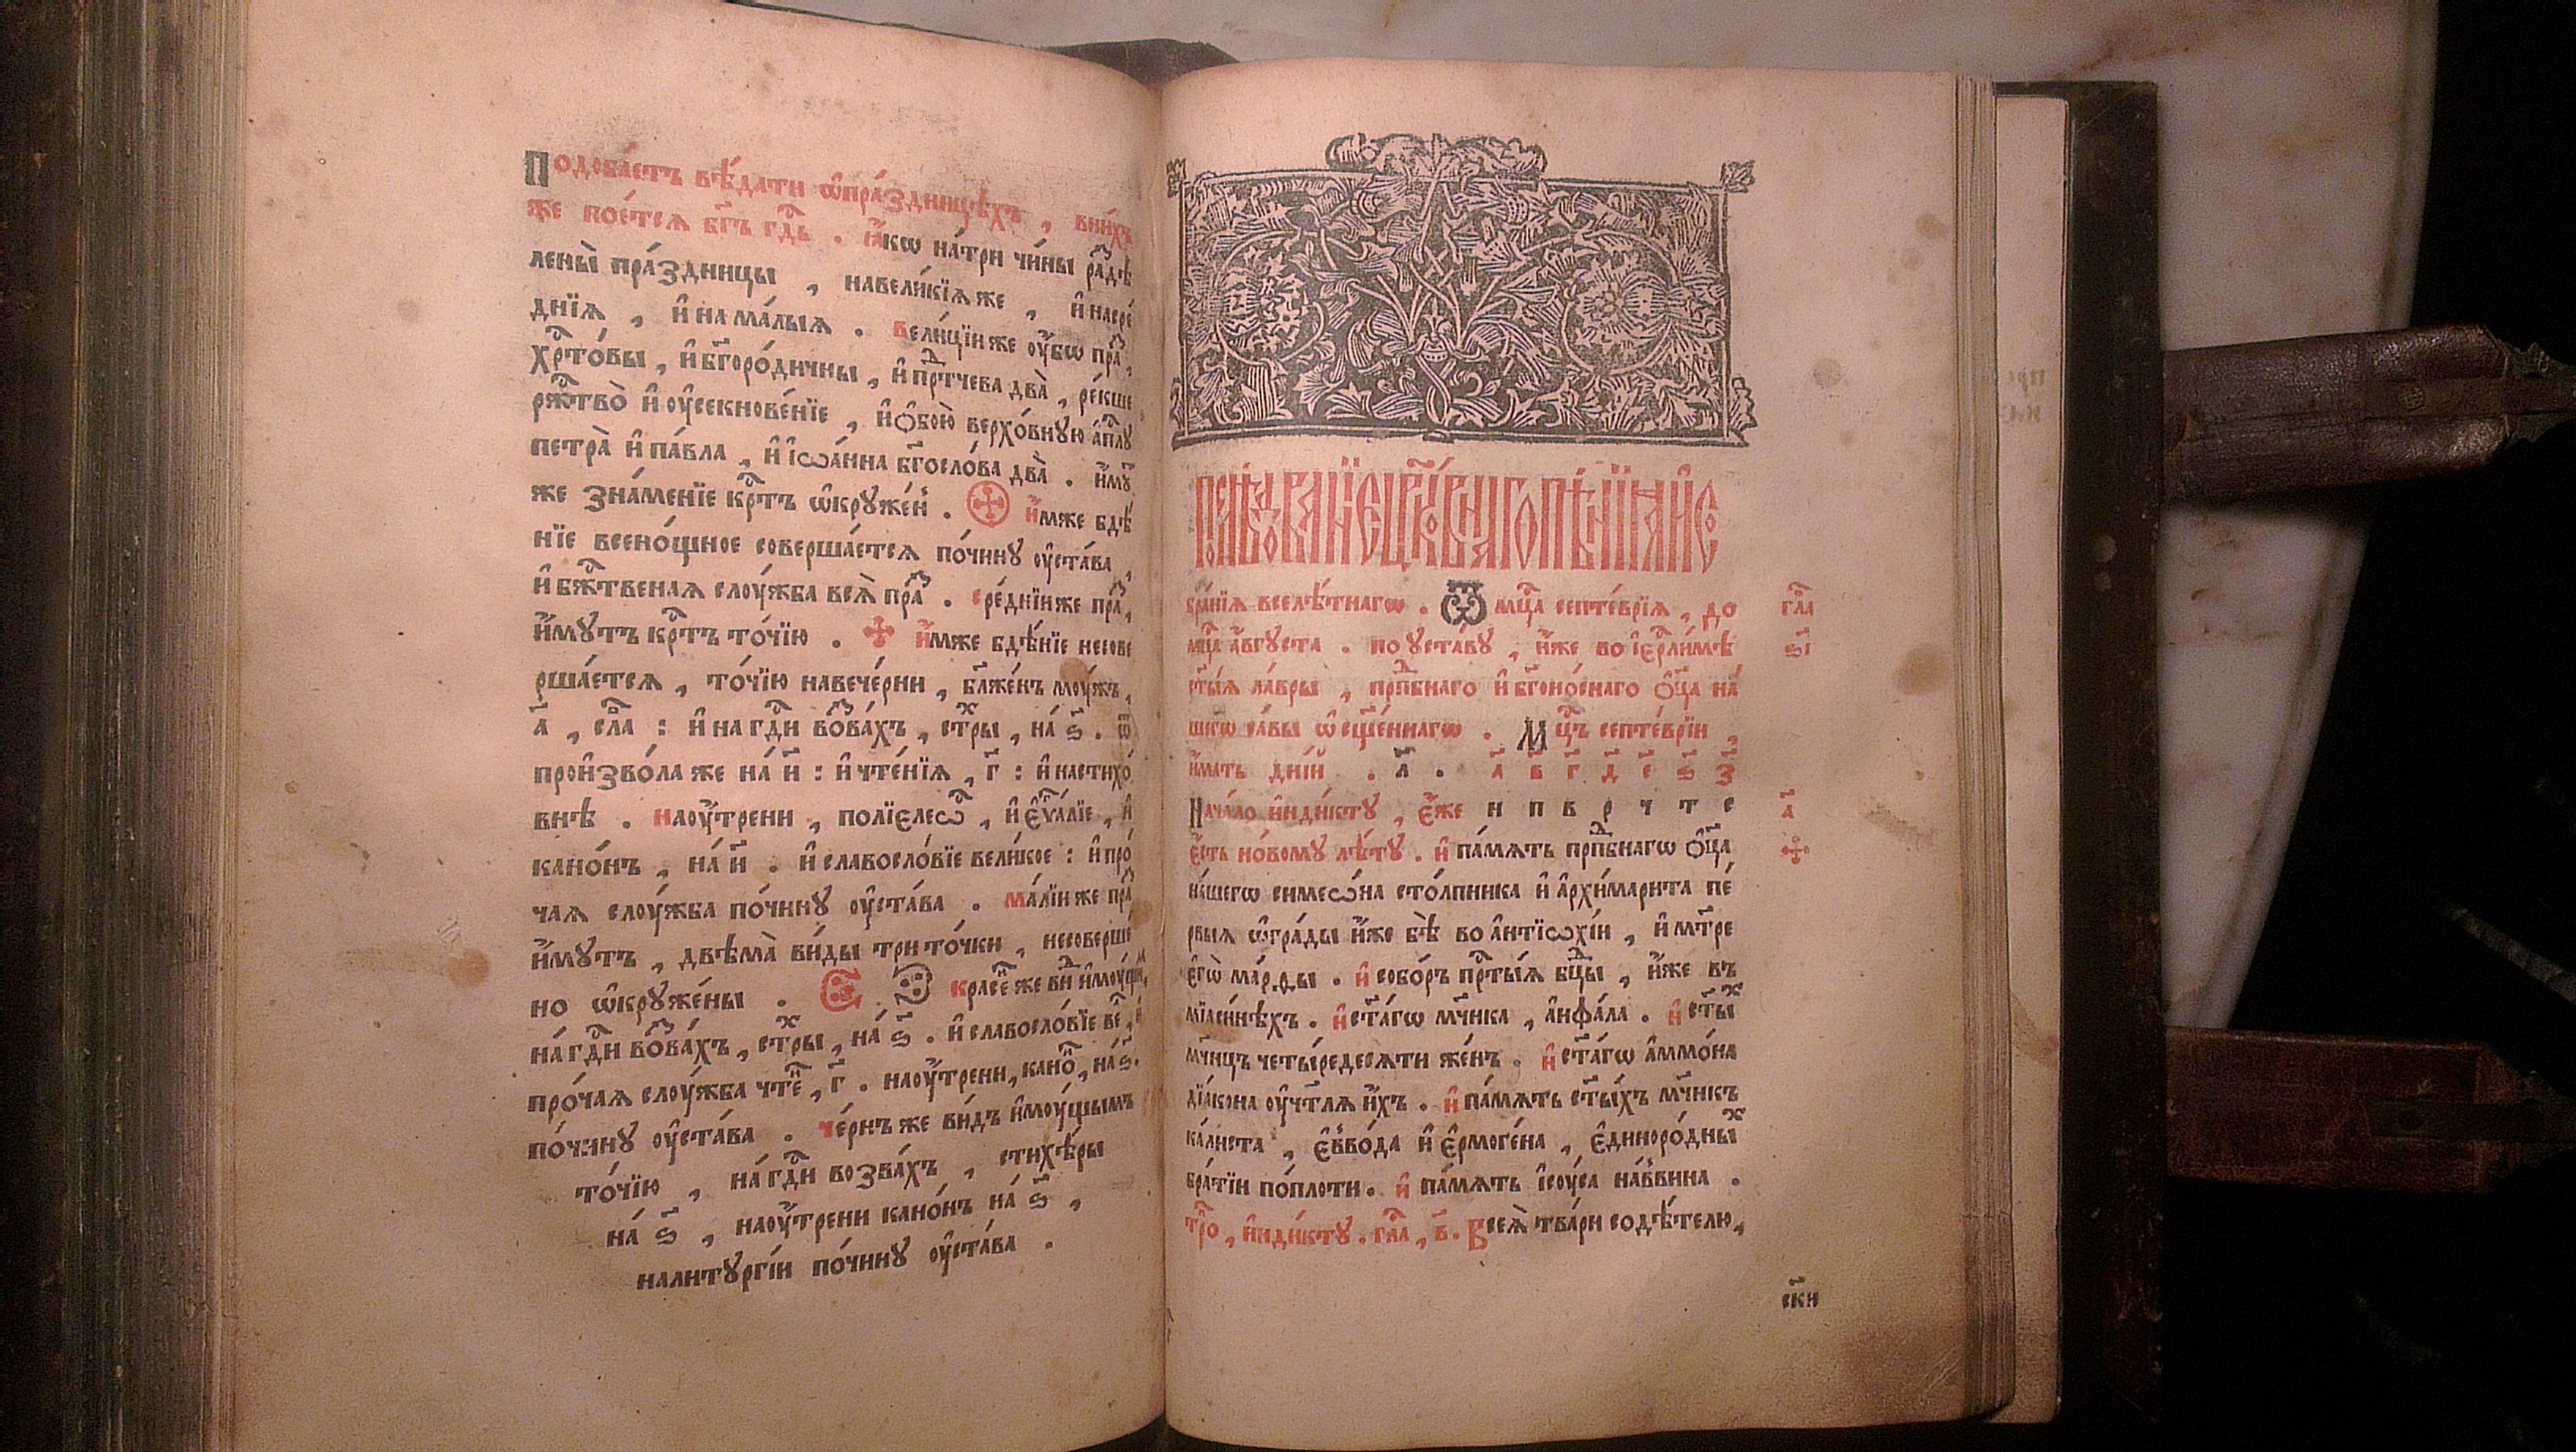 Подоба́етъ вѣ́дати ѡ҆пра́здницѣхъ , вни́хъ
же пое́тсѧ бг҃ъ гдⷭ҇ь . ꙗ҆́кѡ на́три чи́ны раⷥ҇дѣ
лены̀ пра́здницы , навели́кїѧже , и҆насре́
днїѧ , и҆на ма́лыѧ . вели́цїиже ᲂу҆́бѡ праⷥ҇ ,
хрⷭ҇то́вы , и҆бг҃оро́дичны , и҆прⷣтчева два̀ , ре́кше
ржⷭ҇тво̀ и҆ᲂу҆секнове́нїе , и҆ѻ҆бою̀ верхо́вную а҆пⷭ҇лꙋ
петра̀ и҆па́вла , и҆і҆ѡа́нна бг҃осло́ва два̀ . и҆́мꙋ
же зна́менїе крⷭ҇тъ ѡ҆крꙋже́нъ . и҆́мже бдѣ́
нїе всено́щное соверша́етсѧ по́чинꙋ ᲂу҆ста́ва ,
и҆бжⷭ҇твеная слꙋ́жба всѧ̀ праⷥ҇ . сре́днїиже праⷥ҇ ,
и҆́мꙋтъ крⷭ҇тъ то́чїю . и҆́мже бдѣ́нїе несове
рша́етсѧ , то́чїю навече́рни , бл҃же́нъ мꙋ́жъ ,
а҃ , сла : и҆ на гдⷭ҇и воⷥ҇ва́хъ , стⷯры , на́ ѕ҃ . ѿ
прои҆зво́ла же на́ и҃ : и҆чте́нїѧ , г҃ : и҆настихо́
внѣ . наᲂу҆́трени , полїеле́ѡⷭ҇ , и҆є҆ѵⷢ҇а́лїе , и҆
кано́нъ , на́ и҃ . и҆славосло́вїе вели́кое : и҆про́
чаѧ слꙋ́жба по́чинꙋ ᲂу҆ста́ва . ма́лїиже праⷥ҇
и҆́мꙋтъ , двѣма̀ ви́ды три то́чки , несоверше́
но ѡ҆крꙋже́ны . красе́нъ же виⷣ и҆мꙋ́щиⷨ
на́ гдⷭ҇и воⷥ҇ва́хъ , стⷯры , на́ ѕ҃ . и҆славосло́вїе веⷧ҇ , и҆
про́чаѧ слꙋ́жба чте́ , г҃ . наᲂу҆́трени , каноⷩ҇ , на́ ѕ҃ .
по́чинꙋ ᲂу҆ста́ва . че́рнъ же ви́дъ и҆мꙋ́щымъ
то́чїю , на́ гдⷭ҇и возва́хъ , стихѣ́ры
на́ ѕ҃ , наᲂу҆́трени кано́нъ на́ ѕ҃ ,
налитꙋргі́и по́чинꙋ ᲂу҆ста́ва .
Послѣ́дованїе црⷪ҇ко́внаго пѣ́нїѧ и҆ со
бра́нїѧ вселѣ́тнагѡ . Ѿ мцⷭ҇а септе́врїѧ , до
мцⷭ҇а а҆́вгꙋста . по ꙋста́вꙋ , и҆́же во і҆ерⷭ҇ли́мѣ
ст҃ы́ѧ ла́вры , прпⷣбнаго и҆бг҃оно́снаго ѻ҆ц҃а на́
шегѡ са́вы ѡ҆сщ҃е́ннагѡ . Мцⷭ҇ъ септе́врїи ,
и҆́мать дні́й . л҃ . а҃ в҃ г҃ д҃ є҃ ѕ҃ з҃
гла
ѕ҃і
Нача́ло и҆нди́ктꙋ , є҆́же н п в р ч т с
а҃
є҆́сть но́вомꙋ лѣ́тꙋ . и҆ па́мѧть прпⷣбнагѡ ѻ҆ц҃а
на́шегѡ симеѡ́на сто́лпника и҆ а҆рхи́марита пе́
рвыѧ ѡ҆гра́ды и҆́же бѣ̀ во а҆нтїѡхі́и , и҆ мт҃ре
є҆гѡ̀ ма́рѳы . и҆ собо́ръ прⷭ҇ты́ѧ бцⷣы , и҆́же въ
мїаси́нѣхъ . и҆ ст҃а́гѡ мч҃нка , а҆нфа́ла . и҆ ст҃ыⷯ
мч҃нцъ четы́редесѧти же́нъ . и҆ ст҃а́гѡ а҆ммо́на
дїа́кона ᲂу҆чт҃лѧ и҆́хъ . и҆ па́мѧть ст҃ы́хъ мч҃никъ
ка́листа , є҆ввѡ́да и҆ є҆рмоге́на , є҆диноро́дныⷯ
бра́тїи по́плоти . и҆ па́мѧть і҆сꙋ́са на́ввина .
троⷫ҇ , и҆нди́ктꙋ . гла , в҃ . Всеѧ̀ тва́ри содѣ́телю ,
ски